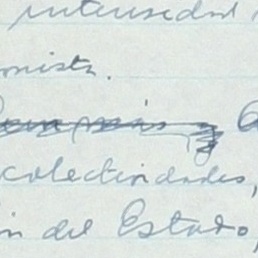 intensidad
onista.
colectividades,
ón del Estado,